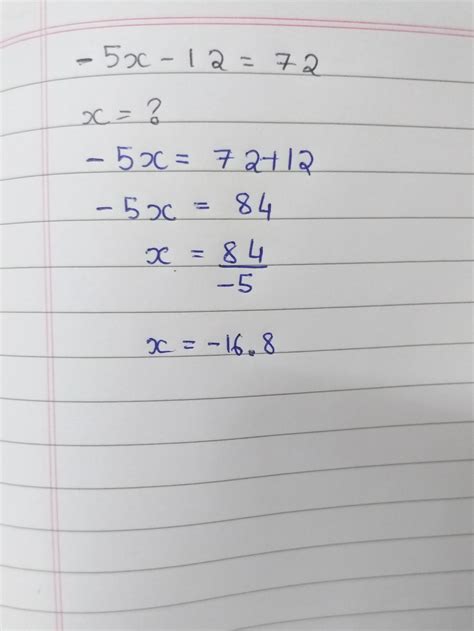 -5x-12=72
x=?
-5x= 72+12
-5x = 84
x = 84
-5
x = -16.8